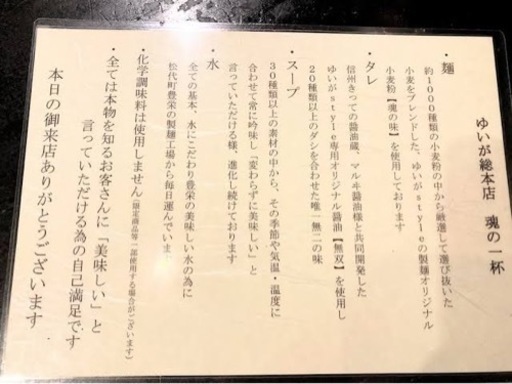 ゆいが総本店　魂の一杯
・麺
約１０００種類の小麦粉の中から厳選して選び抜いた
小麦をブレンドした、ゆいがｓｔｙｌｅの製麺オリジナル
小麦粉【魂の味】を使用しております
・タレ
信州きっての醤油蔵、マルヰ醤油様と共同開発した
ゆいがｓｔｙｌｅ専用オリジナル醤油【無双】を使用し
２０種類以上のダシを合わせた唯一無二の味
・スープ
３０種類以上の素材の中から、その季節や気温・温度に
合わせて常に吟味し「変わらずに美味しい」と
言っていただける様、進化し続けております
・水
全ての基本、水にこだわり豊栄の美味しい水の為に
松代町豊栄の製麺工場から毎日運んでいま
・化学調味料は使用しません（限定商品等一部使用する場合がございます）
・全ては本物を知るお客さんに「美味しい」と
言っていただける為の自己満足です
本日の御来店ありがとうございます